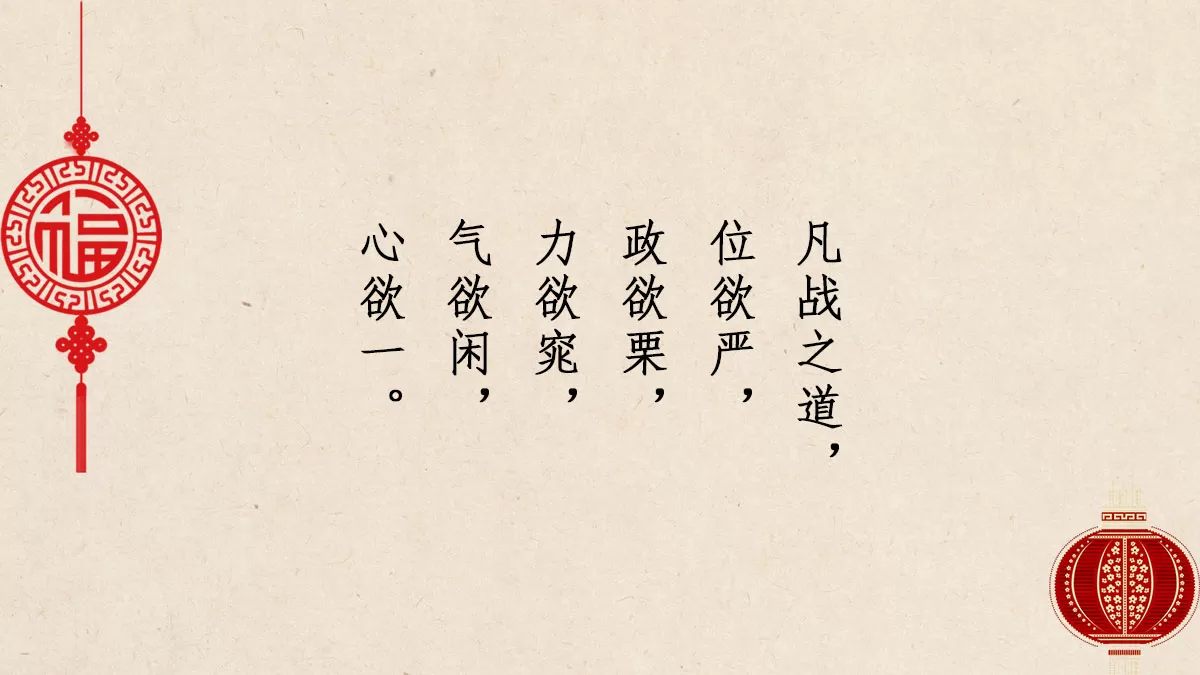 凡战之道，
位欲严，
政欲栗，
力欲窕，
气欲闲，
心欲一。
福